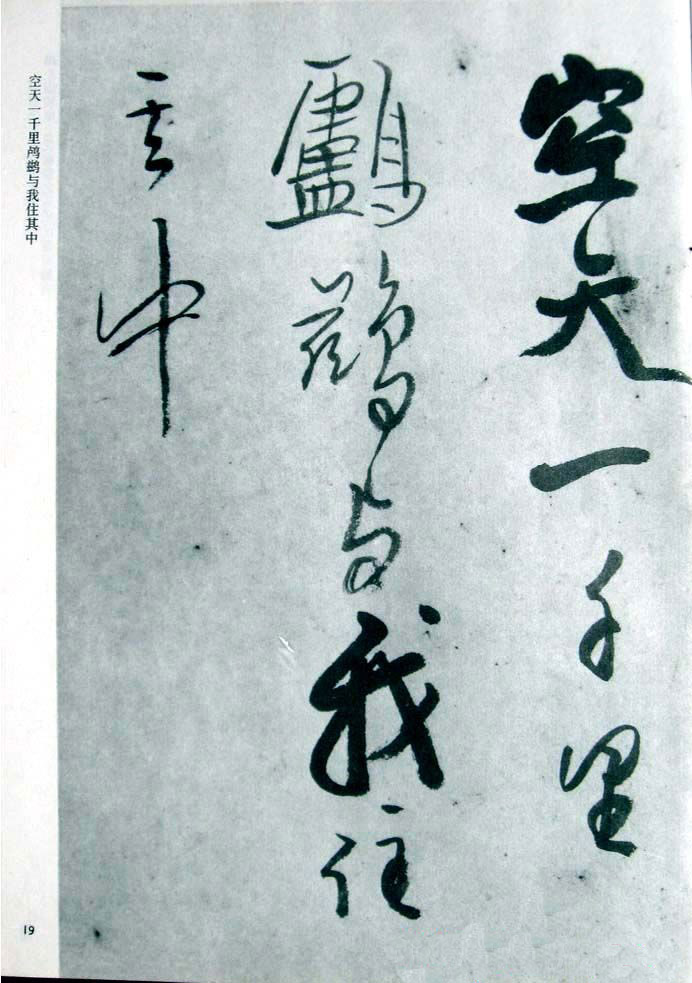 空天一千里
鸕鷀与我住
其中
空天一千里鸬鹚与我住其中
19